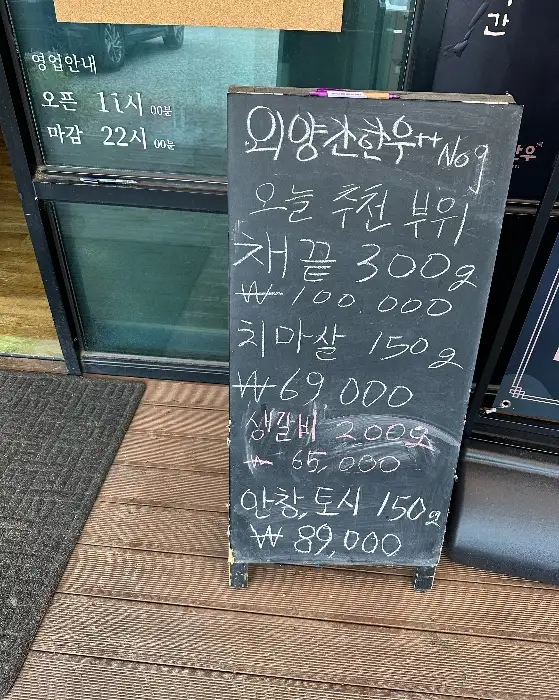 영업안내
오픈 11시 00분
마감 22시 00분
외양간한우++ No9
오늘 추천 부위
채끝 300g
₩ 100.000
치마살 150g
₩ 69 000
생갈비 200g
₩ 65,000
안창, 토시 150g
₩ 89,000
간
한우